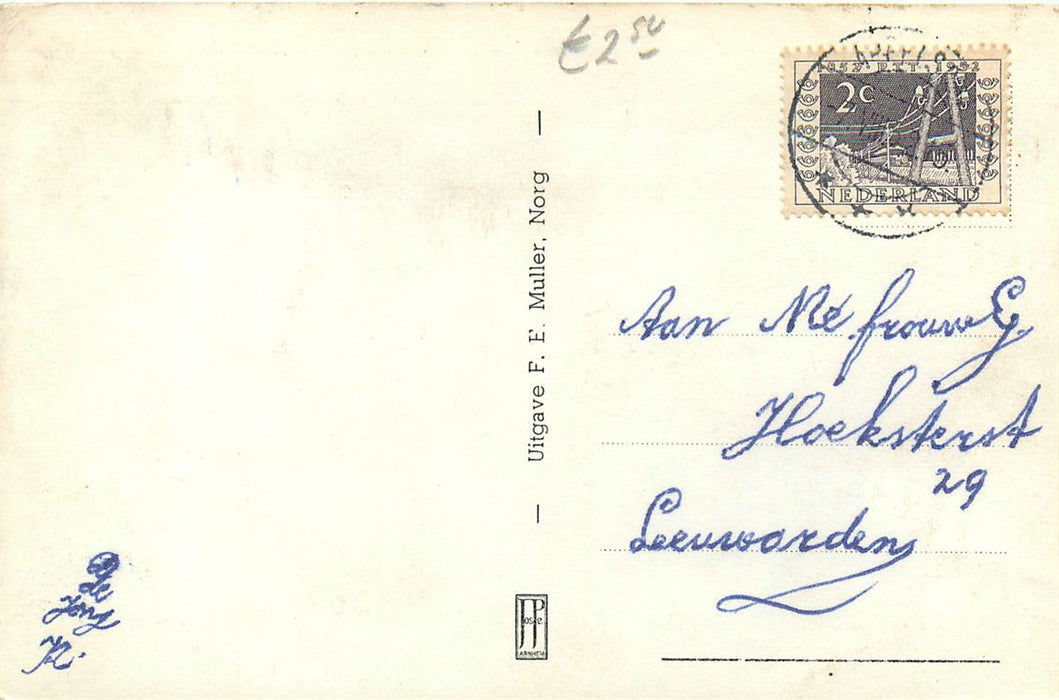 €2 50
1852 PTT 1952
2C
NEDERLAND
— Uitgave F. E. Muller, Norg —
Aan Mé frouw G.
Hoeksterst
29
Leeuwarden
de
Jong
JOSPE
ARNHEM